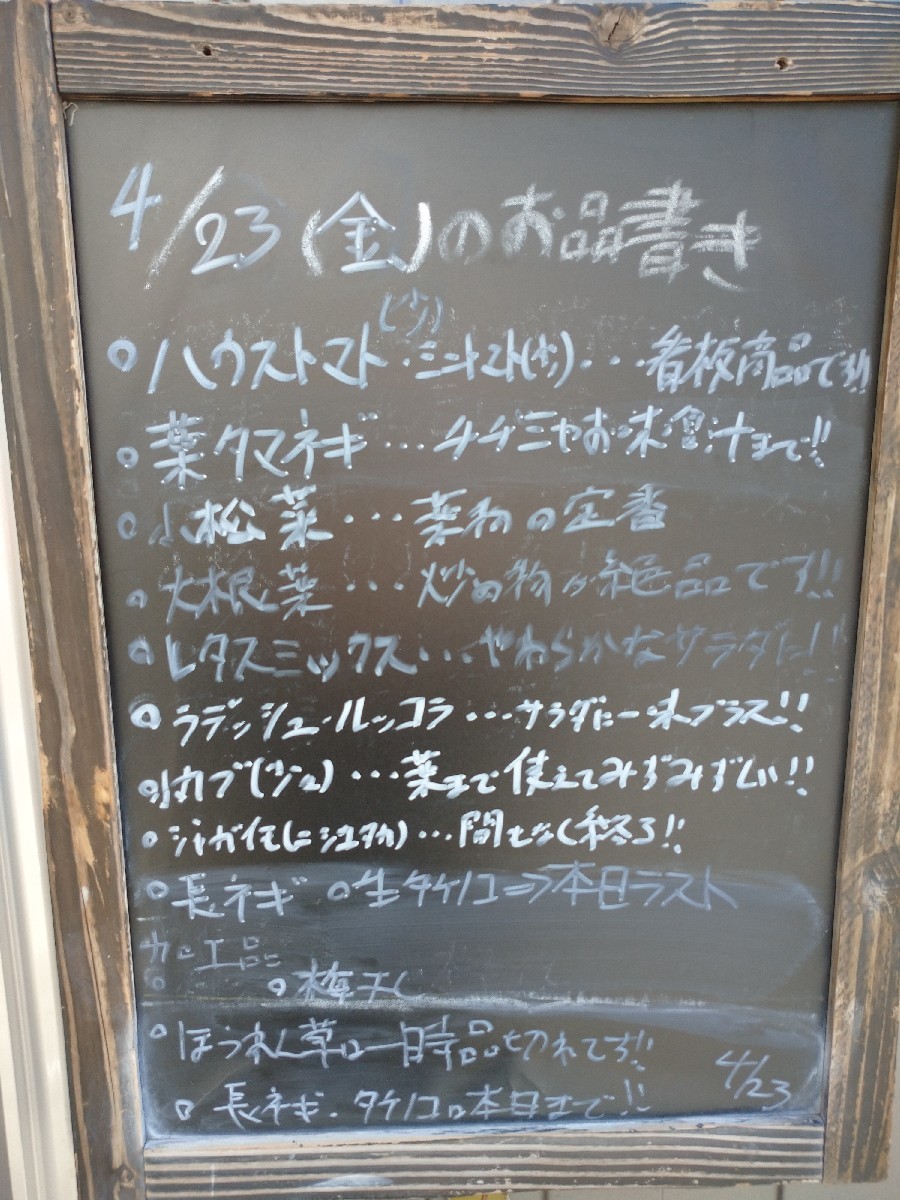 4/23(金)のお品書き
ハウストマト・ミニトマト・・・看板商品です!!
葉タマネギ・・・チヂミやお味噌汁まで!!
小松菜・・・葉物の定番
大根葉・・・炒め物が絶品です!!
レタスミックス・・・やわらかなサラダに!!
ラデッシュ・ルッコラ・・・サラダに一味プラス!!
小カブ・・・葉まで使えてみずみずしい!!
ジャガイモ(ニシユタカ)・・・間もなく終了!!
長ネギ 生タケノコ⇒本日ラスト
加工品
梅干し
ほうれん草は一時品切れです!!
長ネギ・タケノコは本日まで!!
4/23